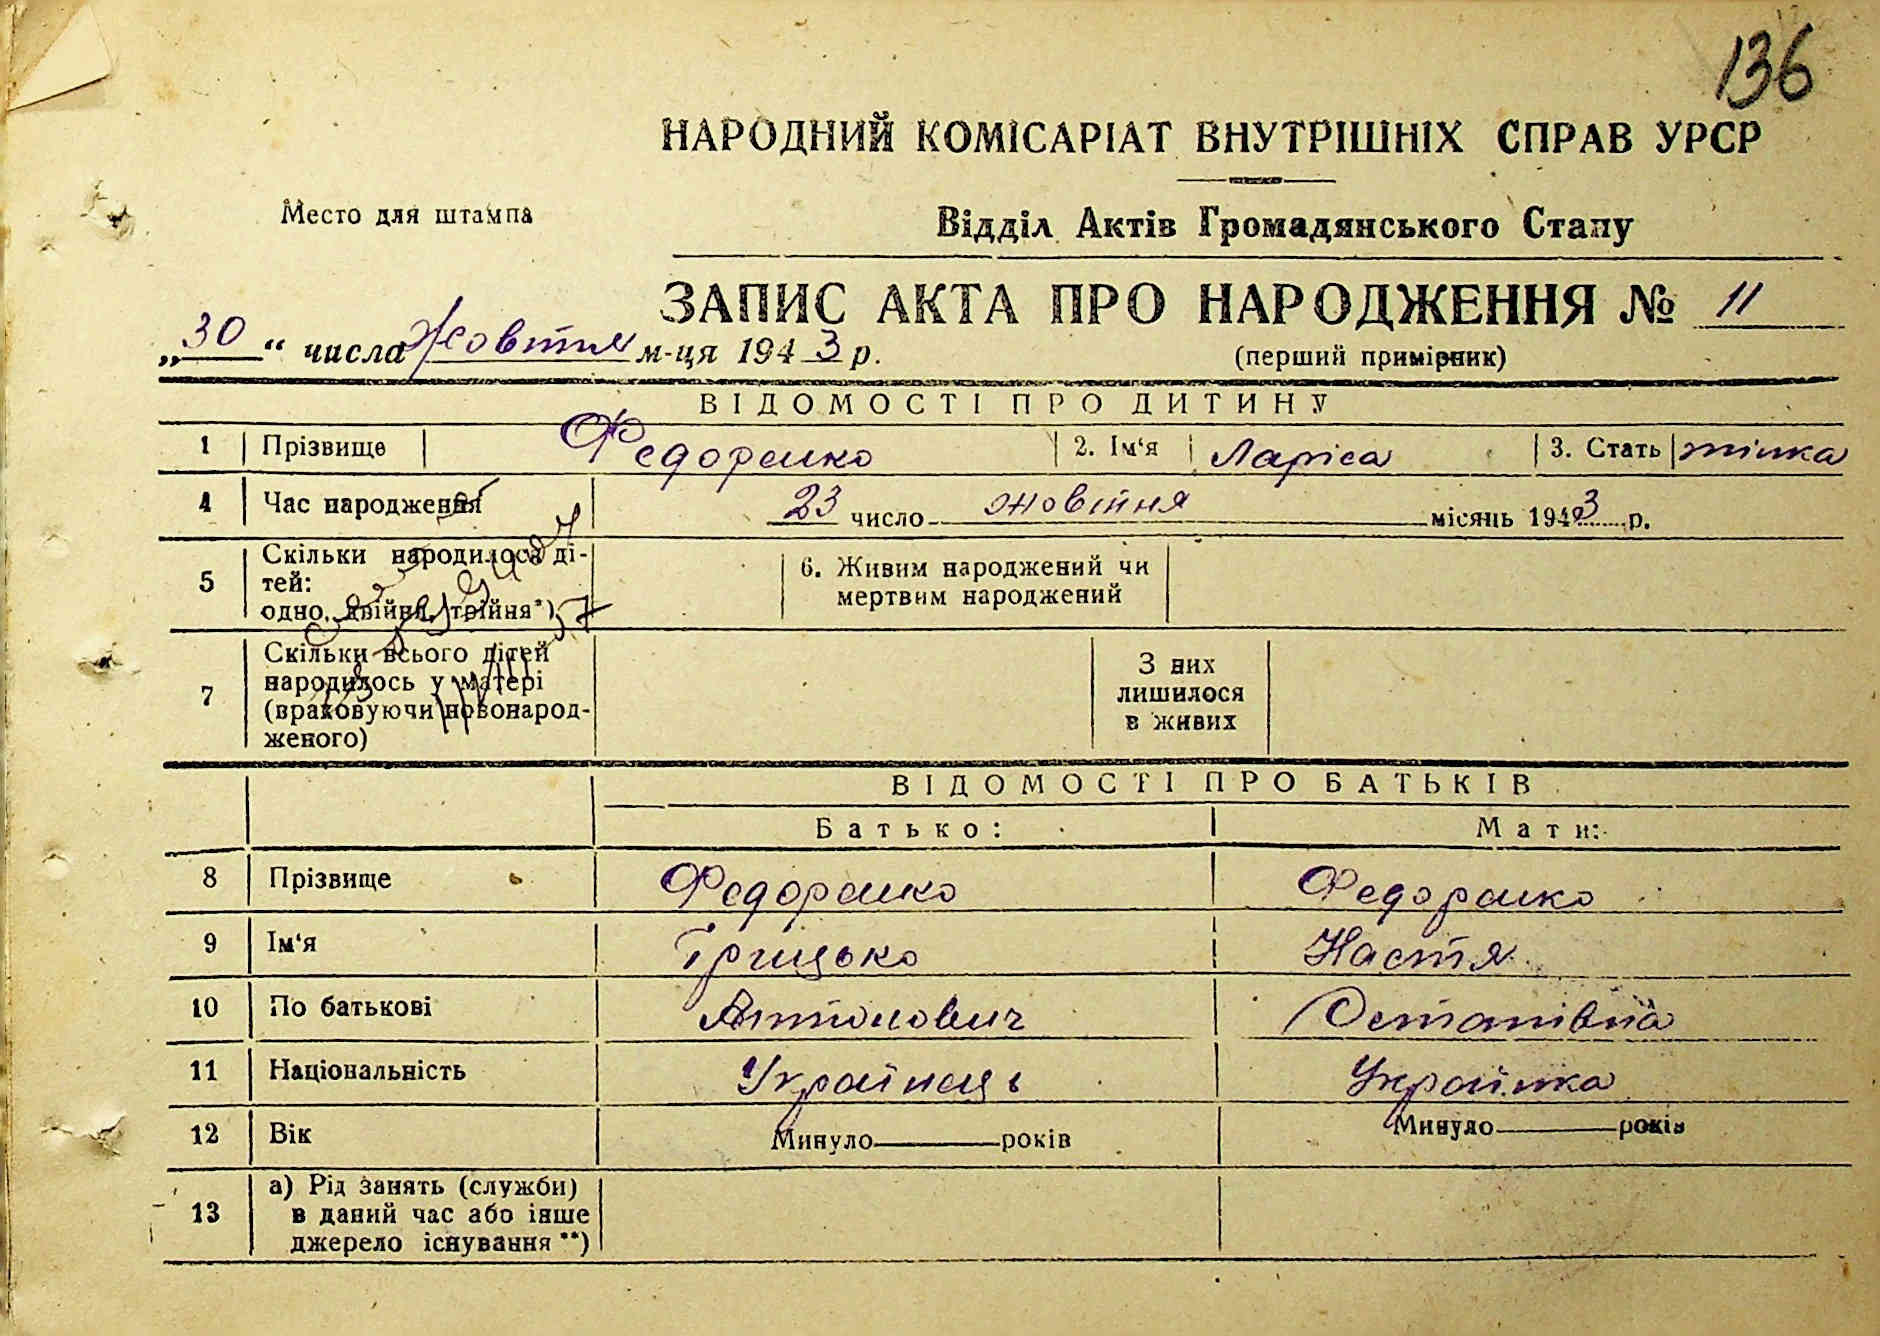 136
НАРОДНИЙ КОМІСАРІАТ ВНУТРІШНІХ СПРАВ УРСР
Место для штампа
Відділ Актів Громадянського Стану
ЗАПИС АКТА ПРО НАРОДЖЕННЯ № 11
„30“ числа Жовтня м-ця 1943 р.
(перший примірник)
ВІДОМОСТІ ПРО ДИТИНУ
1 Прізвище Федоренко 2. Ім'я Ларіса 3. Стать жінка
4 Час народження 23 число жовтня місяць 1943 р.
5 Скільки народилося ді-
тей:
одно, двійня, трійня*)
6. Живим народжений чи
мертвим народжений
7 Скільки всього дітей
народилось у матері
(враховуючи новонарод-
женого)
З них
лишилося
в живих
ВІДОМОСТІ ПРО БАТЬКІВ
Батько: Мати:
8 Прізвище Федоренко Федоренко
9 Ім'я Грицько Настя
10 По батькові Антонович Остапівна
11 Національність Українець Українка
12 Вік Минуло років Минуло років
13 а) Рід занять (служби)
в даний час або інше
джерело існування **)